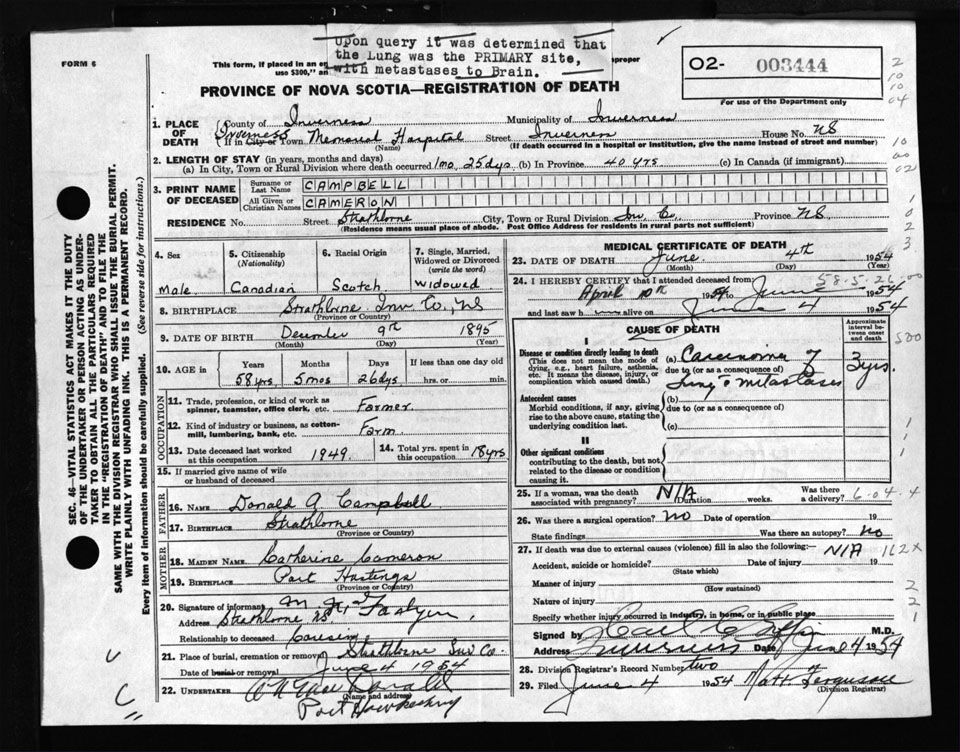 Upon query it was determined that
the Lung was the PRIMARY site,
with metastases to Brain.
FORM 6
This form, if placed in an en
use $300," an
proper
02- 003444
For use of the Department only
PROVINCE OF NOVA SCOTIA—REGISTRATION OF DEATH
1. PLACE OF DEATH
County of Inverness Municipality of Inverness
If in City or Town Inverness Memorial Hospital Street Inverness House No. NS
(Name) (If death occurred in a hospital or institution, give the name instead of street and number)
2. LENGTH OF STAY (in years, months and days)
(a) In City, Town or Rural Division where death occurred 1mo. 25dys (b) In Province 40 yrs (c) In Canada (if immigrant)
3. PRINT NAME OF DECEASED
Surname or Last Name CAMPBELL
All Given or Christian Names CAMERON
RESIDENCE No. Street Strathlorne City, Town or Rural Division Inv Co. Province NS
(Residence means usual place of abode. Post Office Address for residents in rural parts not sufficient)
4. Sex
Male
5. Citizenship (Nationality)
Canadian
6. Racial Origin
Scotch
7. Single, Married, Widowed or Divorced (write the word)
Widowed
8. BIRTHPLACE Strathlorne Inv Co., NS
(Province or Country)
9. DATE OF BIRTH December 9th 1895
(Month) (Day) (Year)
10. AGE in
Years Months Days If less than one day old
58 yrs 5 mos 26 dys hrs. or min.
OCCUPATION
11. Trade, profession, or kind of work as spinner, teamster, office clerk, etc. Farmer.
12. Kind of industry or business, as cotton-mill, lumbering, bank, etc. Farm
13. Date deceased last worked at this occupation 1949.
14. Total yrs. spent in this occupation 18 yrs
15. If married give name of wife or husband of deceased
FATHER
16. NAME Donald A Campbell
17. BIRTHPLACE Strathlorne
(Province or Country)
MOTHER
18. MAIDEN NAME Catherine Cameron
19. BIRTHPLACE Port Hastings
(Province or Country)
20. Signature of informant
Address Strathlorne NS
Relationship to deceased Cousin
21. Place of burial, cremation or removal Strathlorne Inv Co.
Date of burial or removal June 4 1954
22. UNDERTAKER
(Name and address)
Port Hawkesbury
MEDICAL CERTIFICATE OF DEATH
23. DATE OF DEATH June 4th 1954
(Month) (Day) (Year)
24. I HEREBY CERTIFY that I attended deceased from
April 10th 1954 to June 4 1954
and last saw h alive on June 4 1954
58-5-26
CAUSE OF DEATH
Approximate interval between onset and death
I
Disease or condition directly leading to death
(This does not mean the mode of dying, e.g., heart failure, asthenia, etc. It means the disease, injury, or complication which caused death.)
(a) Carcinoma of 3yrs.
due to (or as a consequence of)
lung c metastases
Antecedent causes
Morbid conditions, if any, giving rise to the above cause, stating the underlying condition last.
(b)
due to (or as a consequence of)
(c)
II
Other significant conditions
contributing to the death, but not related to the disease or condition causing it.
25. If a woman, was the death associated with pregnancy? N/A Duration weeks. Was there a delivery?
6-04.4
26. Was there a surgical operation? No Date of operation 19
State findings Was there an autopsy? No
27. If death was due to external causes (violence) fill in also the following:— N/A
162x
Accident, suicide or homicide? Date of injury 19
(State which)
Manner of injury
(How sustained)
Nature of injury
Specify whether injury occurred in industry, in home, or in public place
Signed by M.D.
Address Inverness Date June 4 1954
28. Division Registrar's Record Number two
29. Filed June 4 1954 Matt Ferguson
(Division Registrar)
SEC. 46—VITAL STATISTICS ACT MAKES IT THE DUTY
OF THE UNDERTAKER OR PERSON ACTING AS UNDER-
TAKER TO OBTAIN ALL THE PARTICULARS REQUIRED
IN THE "REGISTRATION OF DEATH" AND TO FILE THE
SAME WITH THE DIVISION REGISTRAR WHO SHALL ISSUE THE BURIAL PERMIT.
WRITE PLAINLY WITH UNFADING INK. THIS IS A PERMANENT RECORD.
Every item of information should be carefully supplied. (See reverse side for instructions.)